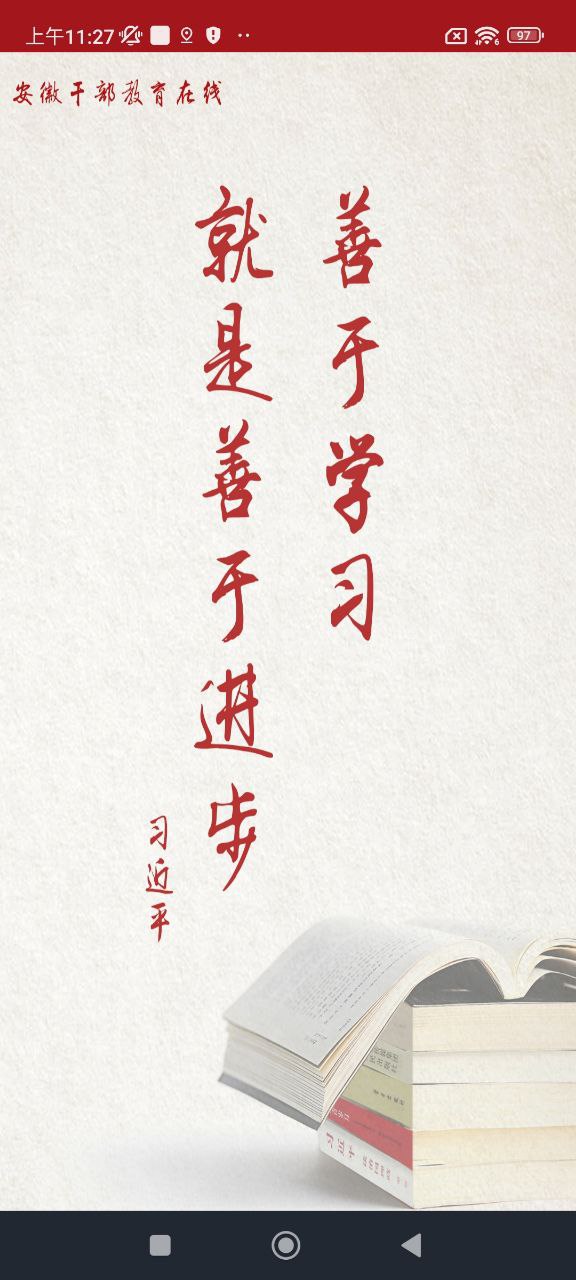 上午11:27
97
安徽干部教育在线
善于学习
就是善于进步
习近平